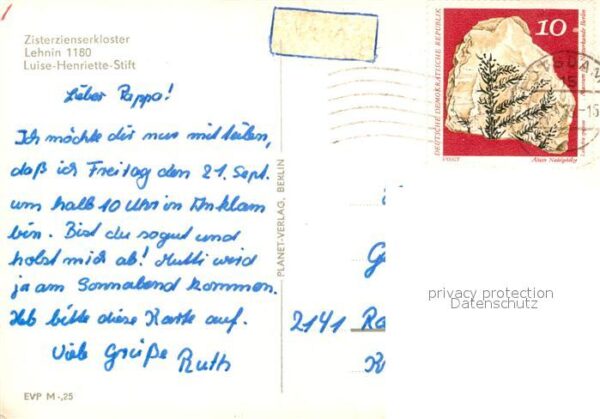 Zisterzienserkloster
Lehnin 1180
Luise-Henriette-Stift
Lieber Pappa!
Ich möchte dir nur mitteilen,
daß ich Freitag den 21. Sept.
um halb 10 Uhr in Anklam
bin. Bist du so gut und
holst mich ab! Mutti wird
ja am Sonnabend kommen.
Heb bitte diese Karte auf.
Viele Grüße Ruth
EVP M -,25
PLANET-VERLAG, BERLIN
10
DEUTSCHE DEMOKRATISCHE REPUBLIK
VOIGT
2141
privacy protection
Datenschutz